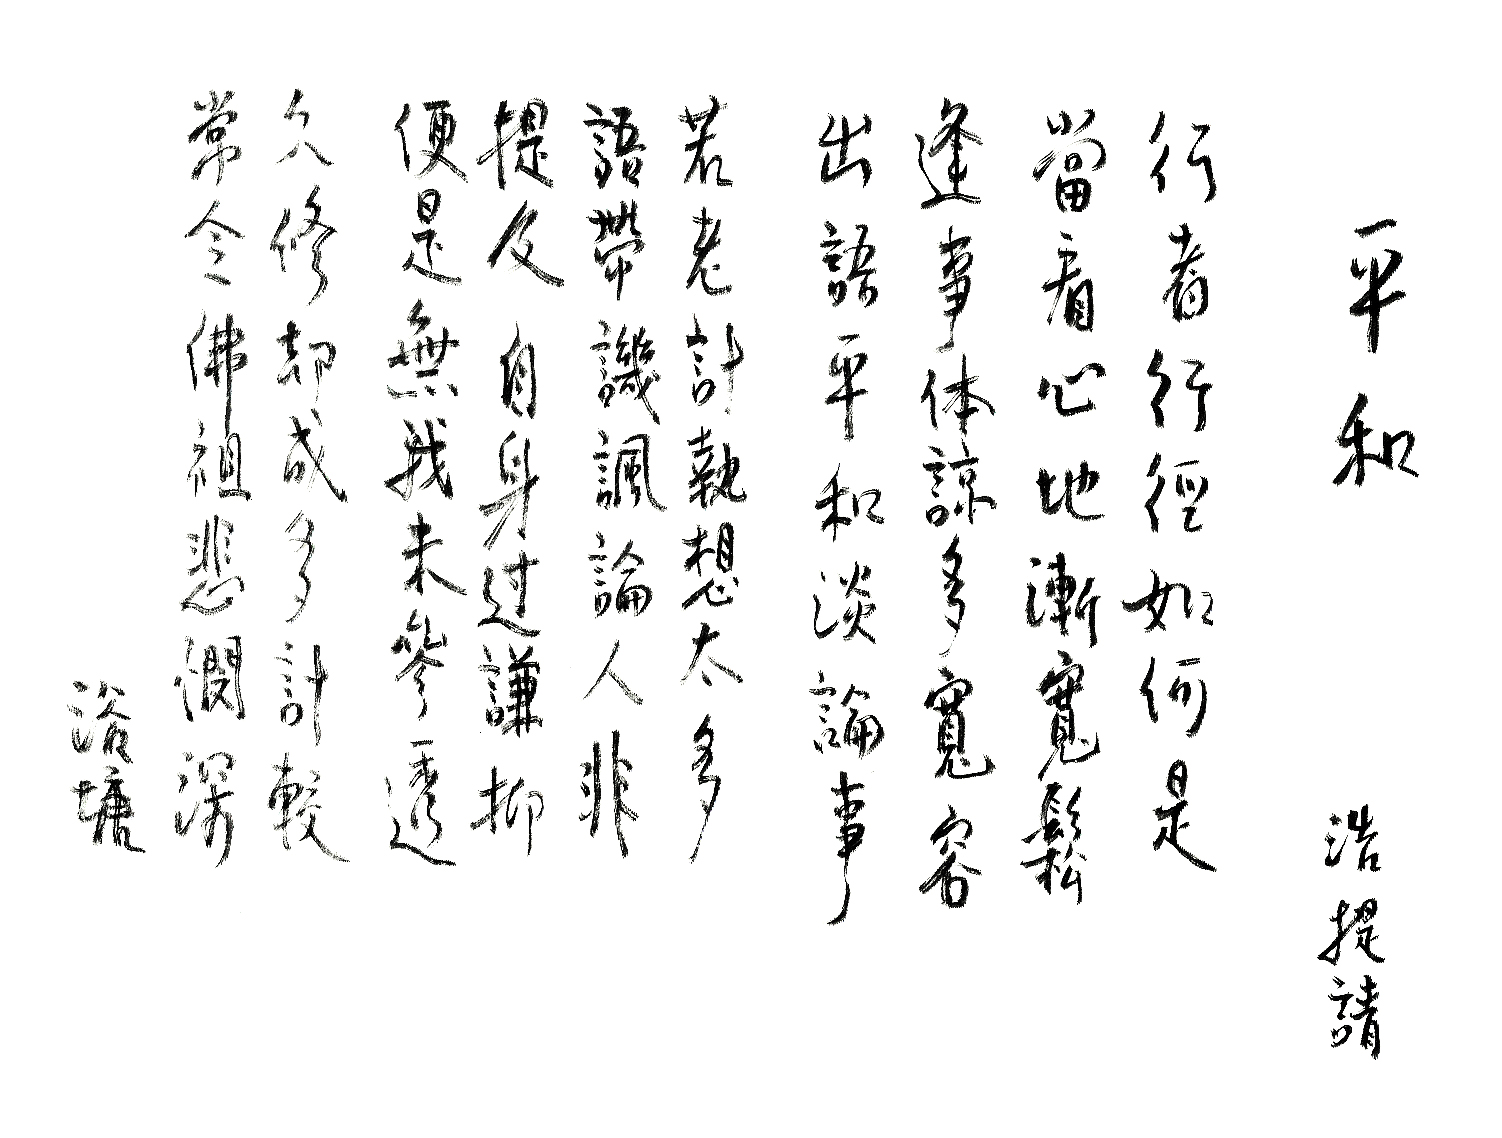 平和 浩提請
行者行徑如何是
當看心地漸寬鬆
逢事体諒多寬容
出語平和淡論事
若老計執想太多
語帶譏諷論人非
提及自身过謙抑
便是無我未參透
久修却成多計較
常令佛祖悲憫深
浴塘